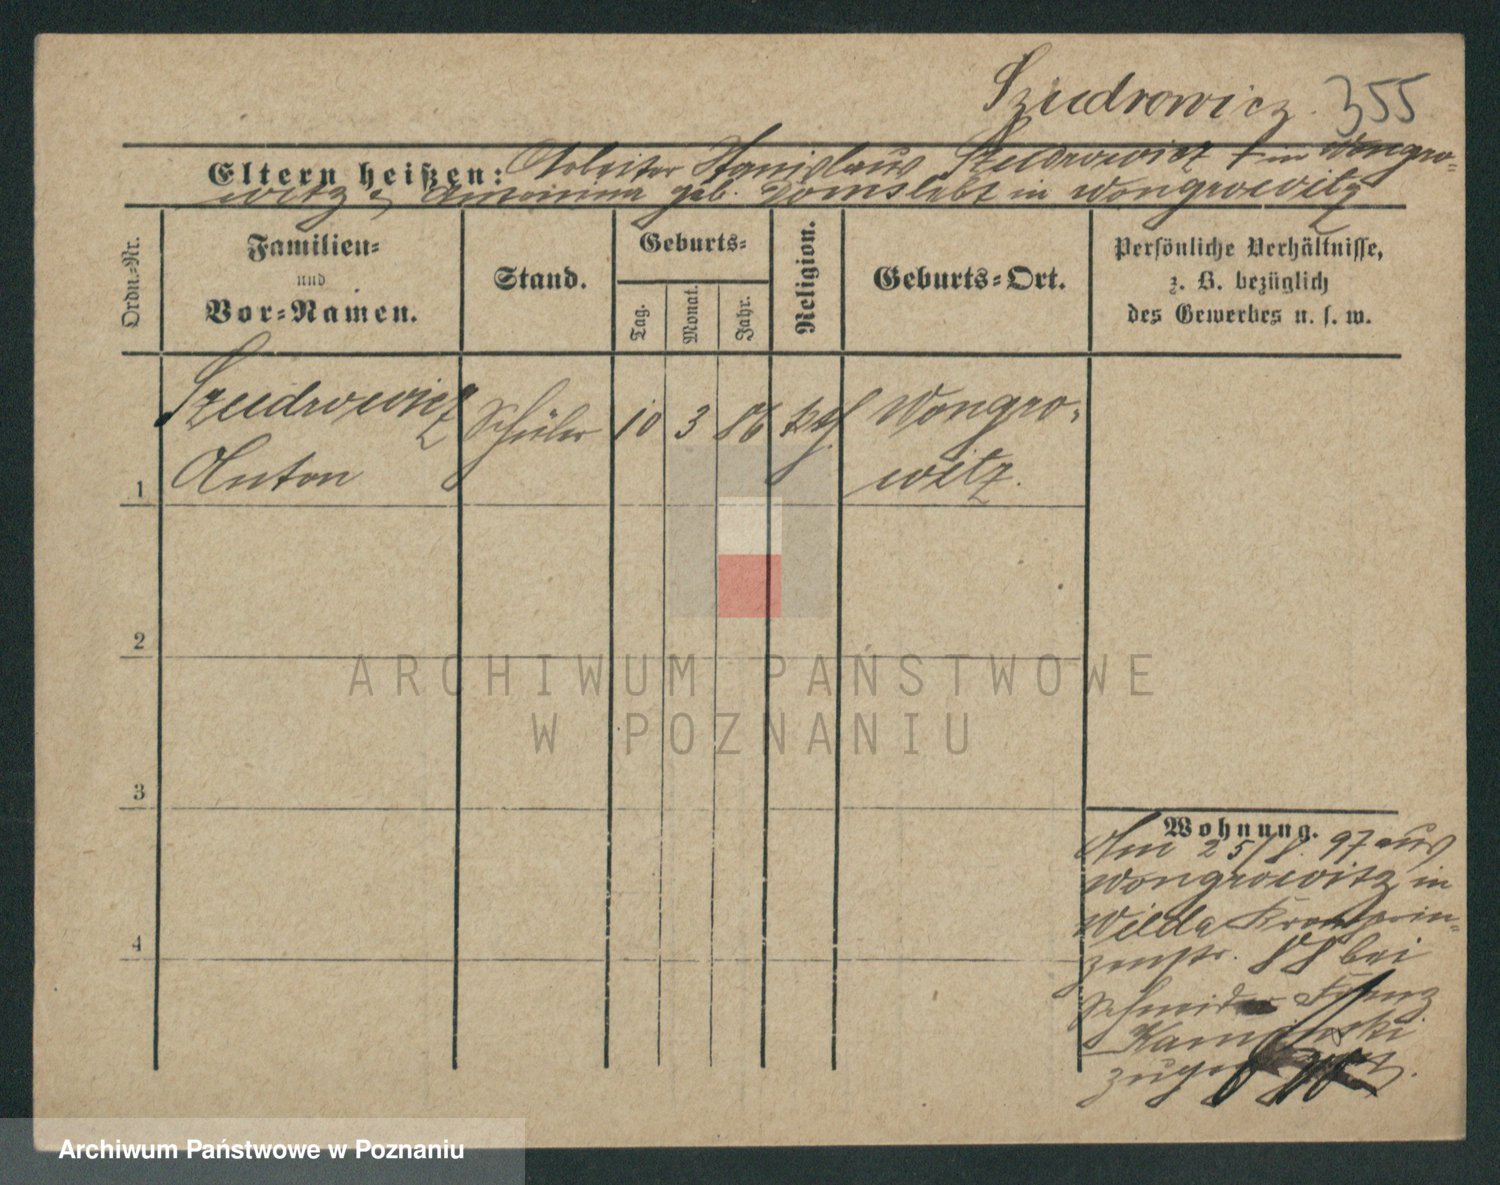 Szudrowicz. 355
Eltern heißen: Arbeiter Stanislaus Szudrowicz † in Wongro-
witz & geb. in Wongrowitz
Ordn.-Nr.
Familien-
und
Vor-Namen.
Stand.
Geburts-
Tag.
Monat.
Jahr.
Religion.
Geburts-Ort.
Persönliche Verhältnisse,
z. B. bezüglich
des Gewerbes u. s. w.
Szudrowicz Schüler 10 3 86 kth. Wongro-
1 Anton witz.
2
3
4
Wohnung.
Am 25/8. 97 aus
Wongrowitz in
Wilda Kronprin-
zenstr. 88 bei
Franz
ARCHIWUM PAŃSTWOWE
W POZNANIU
Archiwum Państwowe w Poznaniu